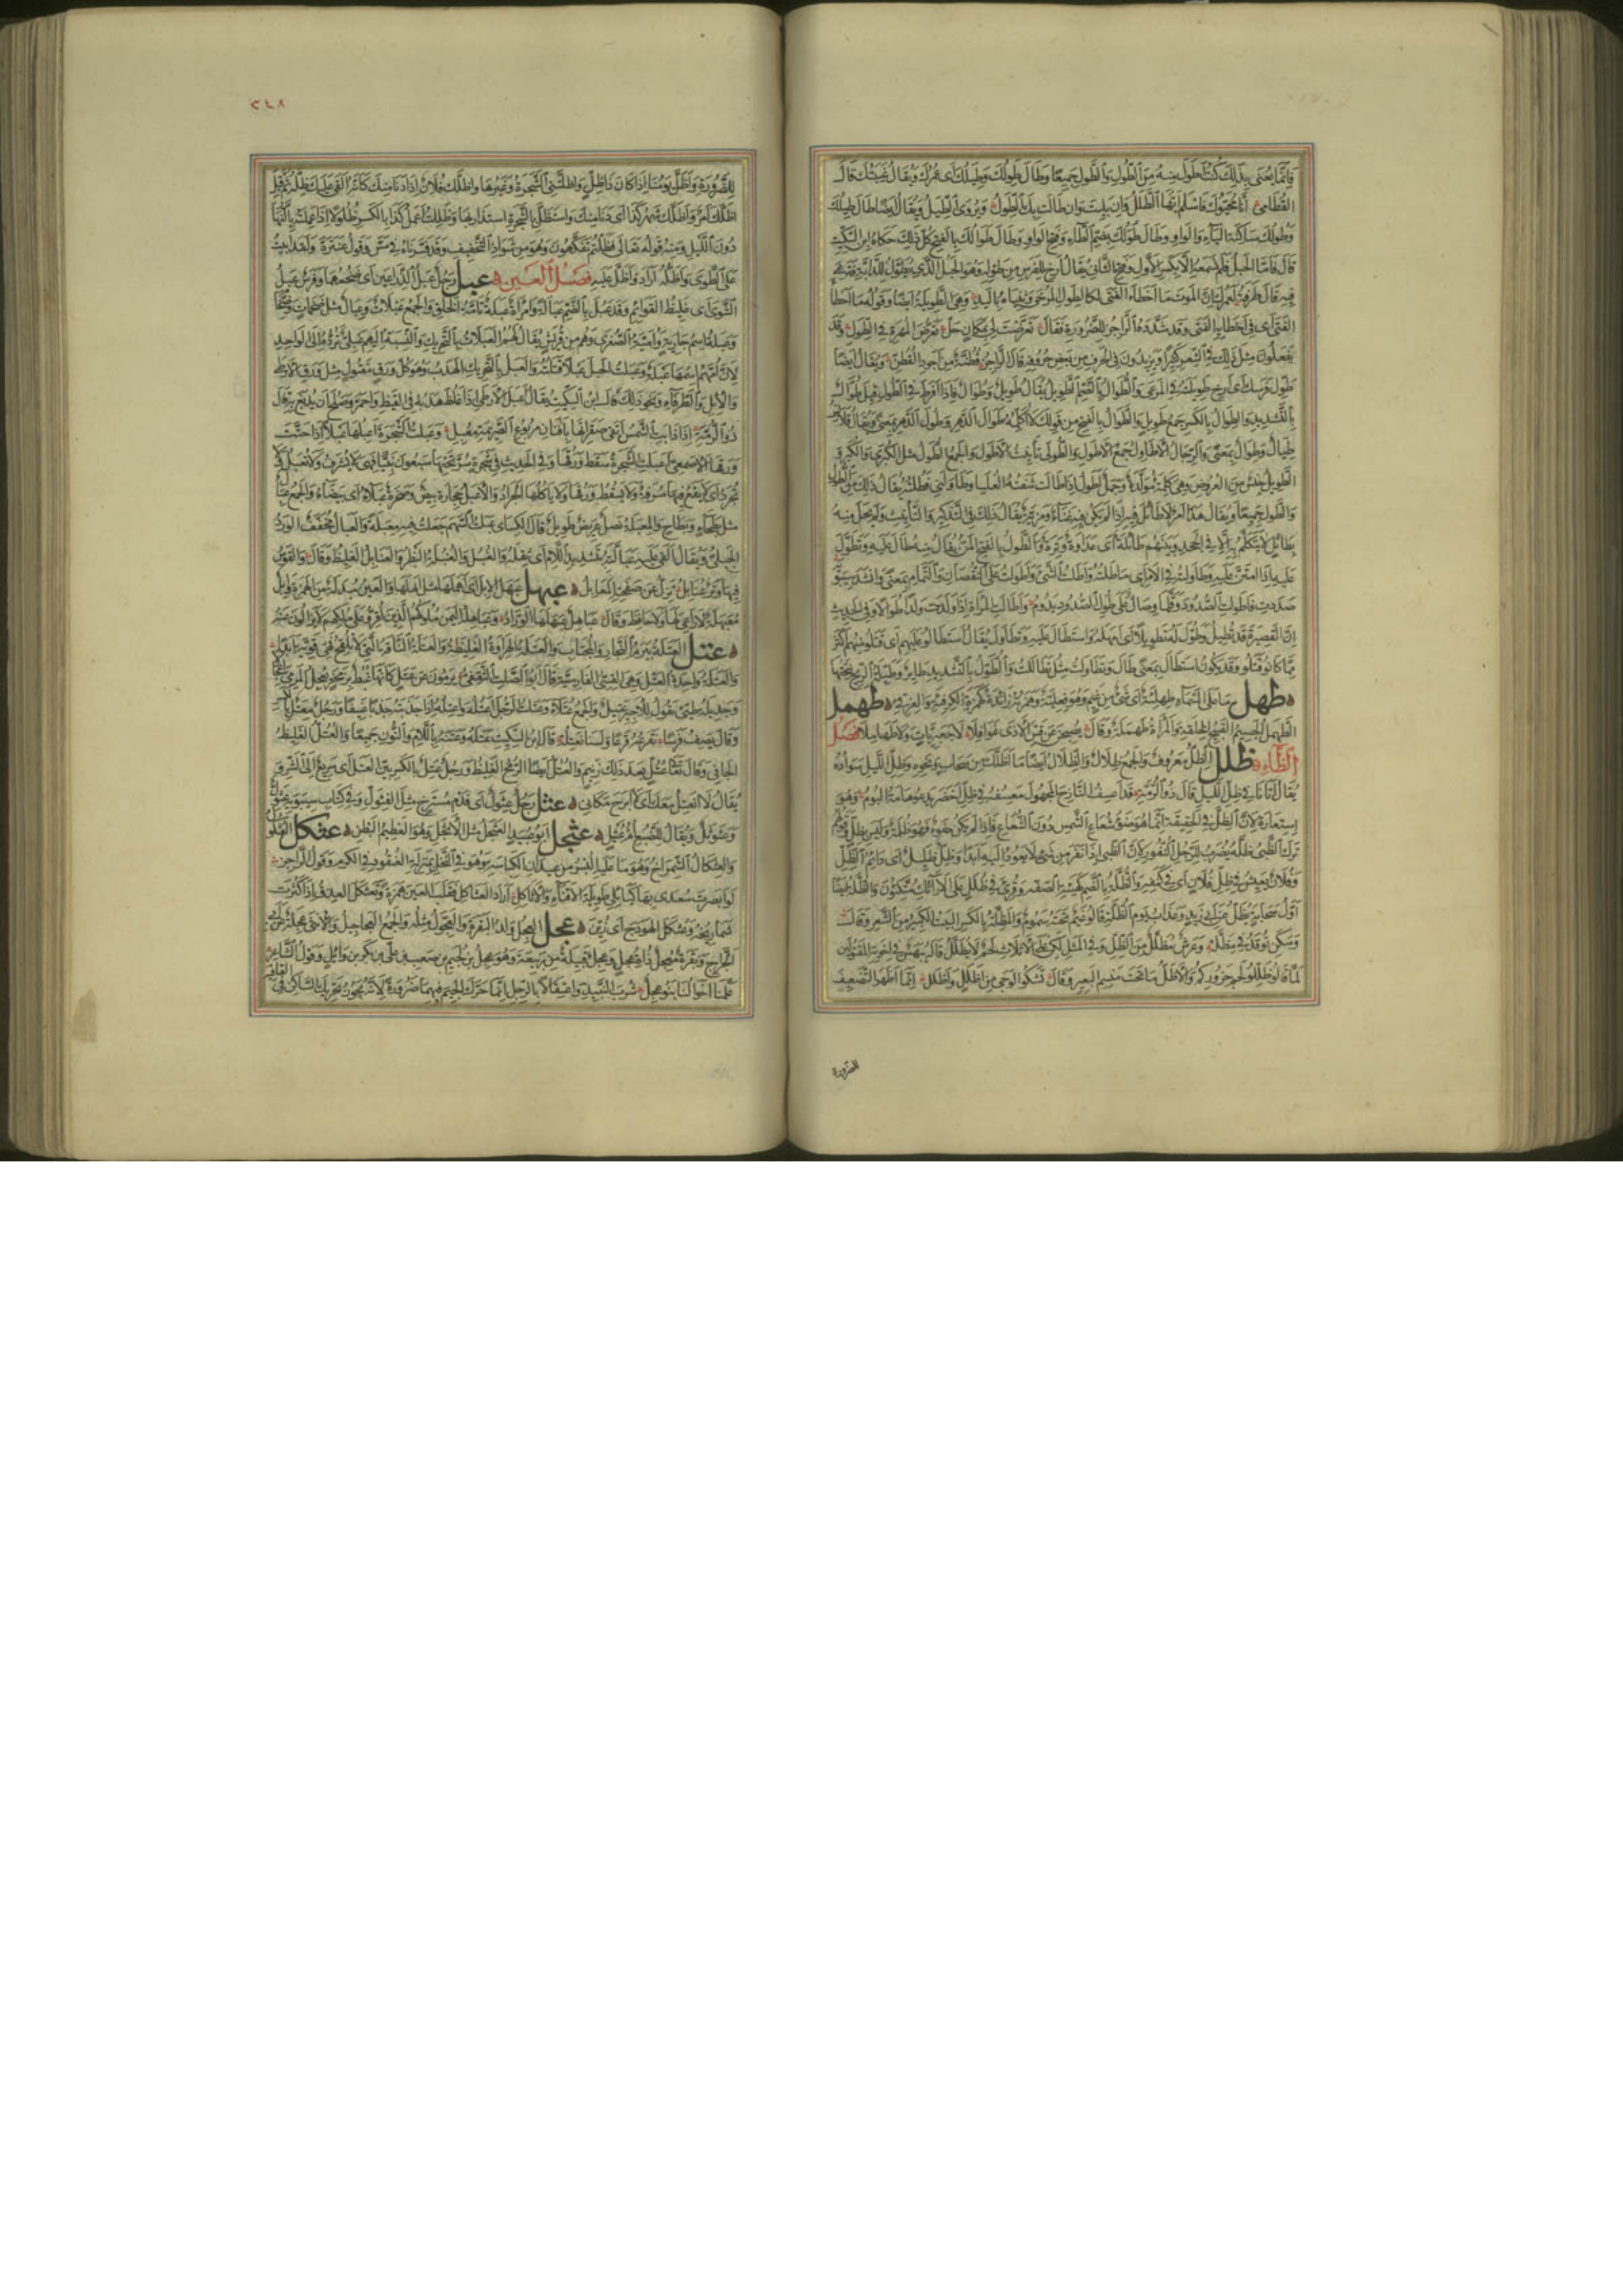 فَإِنَّمَا يُعْنَى بِذَلِكَ كُنْتُ أَطْوَلَ مِنْهُ مِنَ الطُّولِ وَالطَّوْلِ جَمِيعًا وَطَالَ طِوَلُكَ وَطِيَلُكَ أَى عُمُرُكَ وَيُقَالُ غَيْبَتُكَ قَالَ
القُطَامِىُّ إِنَّا مُحَيُّوكَ فَاسْلَمْ أَيُّهَا الطَّلَلُ وَإِنْ بَلِيتَ وَإِنْ طَالَتْ بِكَ الطِّوَلُ وَيُرْوَى الطِّيَلُ وَيُقَالُ أَيْضًا طَالَ طِيلُكَ
وَطُولُكَ سَاكِنَةَ اليَاءِ وَالوَاوِ وَطَالَ طُوَلُكَ بِضَمِّ الطَّاءِ وَفَتْحِ الوَاوِ وَطَالَ طَوَالُكَ بِالفَتْحِ كُلُّ ذَلِكَ حَكَاهُ ابْنُ السِّكِّيتِ
قَالَ فَأَمَّا الحَبْلُ فَلَمْ نَسْمَعْهُ إِلَّا بِكَسْرِ الأَوَّلِ وَفَتْحِ الثَّانِى يُقَالُ أَرْخِ لِلْفَرَسِ مِنْ طِوَلِهِ وَهُوَ الحَبْلُ الَّذِى يُطَوَّلُ لِلدَّابَّةِ فَتَرْعَى
فِيهِ قَالَ طَرَفَةُ لَعَمْرُكَ إِنَّ المَوْتَ مَا أَخْطَأَ الفَتَى لَكَالطِّوَلِ المُرْخَى وَثِنْيَاهُ بِاليَدِ وَهِىَ الطَّوِيلَةُ أَيْضًا وَقَوْلُهُ مَا أَخْطَأَ
الفَتَى أَى فِى إِخْطَائِهِ الفَتَى وَقَدْ شَدَّدَهُ الرَّاجِزُ لِلضَّرُورَةِ فَقَالَ تَعَرَّضَتْ لِى بِمَكَانٍ حِلِّ تَعَرُّضَ المُهْرَةِ فِى الطِّوَلِّ وَقَدْ
يَفْعَلُونَ مِثْلَ ذَلِكَ فِى الشِّعْرِ كَثِيرًا وَيَزِيدُونَ فِى الحَرْفِ مِنْ بَعْضِ حُرُوفِهِ قَالَ الرَّاجِزُ قُطُنَّةٌ مِنْ أَجْوَدِ القُطُنِّ وَيُقَالُ أَيْضًا
طَوِّلْ فَرَسَكَ أَى أَرْخِ طَوِيلَتَهُ فِى المَرْعَى وَالطُّوَالُ بِالضَّمِّ الطَّوِيلُ يُقَالُ طَوِيلٌ وَطُوَالٌ فَإِذَا أَفْرَطَ فِى الطُّولِ قِيلَ طُوَّالٌ
بِالتَّشْدِيدِ وَالطِّوَالُ بِالكَسْرِ جَمْعُ طَوِيلٍ وَالطَّوَالُ بِالفَتْحِ مِنْ قَوْلِكَ لَا أُكَلِّمُهُ طَوَالَ الدَّهْرِ وَطُولَ الدَّهْرِ بِمَعْنًى وَيُقَالُ قَلَانِسُ
طِيَالٌ وَطِوَالٌ بِمَعْنًى وَالرِّجَالُ الأَطَاوِلُ جَمْعُ الأَطْوَلِ وَالطُّولَى تَأْنِيثُ الأَطْوَلِ وَالجَمْعُ الطُّوَلُ مِثْلُ الكُبْرَى وَالكُبَرِ وَ
الطَّوِيلُ جِنْسٌ مِنَ العَرُوضِ وَهِىَ كَلِمَةٌ مُوَلَّدَةٌ وَجَمَلٌ أَطْوَلُ إِذَا طَالَتْ شَفَتُهُ العُلْيَا وَطَاوَلَنِى فَطُلْتُهُ يُقَالُ ذَلِكَ مِنَ الطُّولِ
وَالطَّوْلِ جَمِيعًا وَيُقَالُ هَذَا أَمْرٌ لَا طَائِلَ فِيهِ إِذَا لَمْ يَكُنْ فِيهِ غَنَاءٌ وَمَزِيَّةٌ يُقَالُ ذَلِكَ فِى التَّذْكِيرِ وَالتَّأْنِيثِ وَلَمْ يَحْلَ مِنْهُ
بِطَائِلٍ لَا يُتَكَلَّمُ بِهِ إِلَّا فِى الجَحْدِ وَبَيْنَهُمْ طَائِلَةٌ أَى عَدَاوَةٌ وَتِرَةٌ وَالطَّوْلُ بِالفَتْحِ المَنُّ يُقَالُ مِنْهُ طَالَ عَلَيْهِ وَتَطَوَّلَ
عَلَيْهِ إِذَا امْتَنَّ عَلَيْهِ وَطَاوَلْتُهُ فِى الأَمْرِ أَى مَاطَلْتُهُ وَأَطَلْتُ الشَّىْءَ وَأَطْوَلْتُ عَلَى النُّقْصَانِ وَالتَّمَامِ بِمَعْنًى وَأَنْشَدَ سِيبَوَيْهِ
صَدَدْتِ فَأَطْوَلْتِ الصُّدُودَ وَقَلَّمَا وِصَالٌ عَلَى طُولِ الصُّدُودِ يَدُومُ وَأَطَالَتِ المَرْأَةُ إِذَا وَلَدَتْ وَلَدًا طِوَالًا وَفِى الحَدِيثِ
إِنَّ القَصِيرَةَ قَدْ تُطِيلُ وَطَوَّلَ لَهُ تَطْوِيلًا أَى أَمْهَلَهُ وَاسْتَطَالَ عَلَيْهِ وَتَطَاوَلَ يُقَالُ اسْتَطَالُوا عَلَيْهِمْ أَى قَتَلُوا مِنْهُمْ أَكْثَرَ
مِمَّا كَانُوا قَتَلُوا وَقَدْ يَكُونُ اسْتَطَالَ بِمَعْنَى طَالَ وَتَطَاوَلْتُ مِثْلُ تَطَالَلْتُ وَالطُّوَّلُ بِالتَّشْدِيدِ طَائِرٌ وَطَيِّلَةُ الرِّيحِ نَيِّحَتُهَا
طهل مَا عَلَى السَّمَاءِ طِهْلِئَةٌ أَى شَىْءٌ مِنْ غَيْمٍ وَهُوَ فِعْلِئَةٌ وَهَمْزَتُهُ زَائِدَةٌ كَهَمْزَةِ الكِرْفِئَةِ وَالغِرْقِئِ طهمل
الطَّهْمَلُ الجَسِيمُ القَبِيحُ الخِلْقَةِ وَالمَرْأَةُ طَهْمَلَةٌ وَقَالَ يُصْبِحْنَ عَنْ قَسِّ الأَذَى غَوَافِلَا لَا جَعْبَرِيَّاتٍ وَلَا طَهَامِلَا فَصْلُ
الظَّاءِ ظلل الظِّلُّ مَعْرُوفٌ وَالجَمْعُ ظِلَالٌ وَالظِّلَالُ أَيْضًا مَا أَظَلَّكَ مِنْ سَحَابٍ وَنَحْوِهِ وَظِلُّ اللَّيْلِ سَوَادُهُ
يُقَالُ أَتَانَا فِى ظِلِّ اللَّيْلِ قَالَ ذُو الرُّمَّةِ قَدْ أَعْسِفُ النَّازِحَ المَجْهُولَ مَعْسِفُهُ فِى ظِلِّ أَخْضَرَ يَدْعُو هَامَهُ البُومُ وَهُوَ
اسْتِعَارَةٌ لِأَنَّ الظِّلَّ فِى الحَقِيقَةِ إِنَّمَا هُوَ ضَوْءُ شُعَاعِ الشَّمْسِ دُونَ الشُّعَاعِ فَإِذَا لَمْ يَكُنْ ضَوْءٌ فَهُوَ ظُلْمَةٌ وَلَيْسَ بِظِلٍّ وَقَوْلُهُمْ
تَرَكَ الظَّبْىُ ظِلَّهُ يُضْرَبُ لِلرَّجُلِ النَّفُورِ لِأَنَّ الظَّبْىَ إِذَا نَفَرَ مِنْ شَىْءٍ لَا يَعُودُ إِلَيْهِ أَبَدًا وَظِلٌّ ظَلِيلٌ أَى دَائِمُ الظِّلِّ
وَفُلَانٌ يَعِيشُ فِى ظِلِّ فُلَانٍ أَى فِى كَنَفِهِ وَالظُّلَّةُ بِالضَّمِّ كَهَيْئَةِ الصُّفَّةِ وَقُرِئَ فِى ظُلَلٍ عَلَى الأَرَائِكِ مُتَّكِئُونَ وَالظُّلَّةُ أَيْضًا
أَوَّلُ سَحَابَةٍ تُظِلُّ عَنْ أَبِى زَيْدٍ وَعَذَابُ يَوْمِ الظُّلَّةِ قَالُوا غَيْمٌ تَحْتَهُ سَمُومٌ وَالمِظَلَّةُ بِالكَسْرِ البَيْتُ الكَبِيرُ مِنَ الشَّعَرِ وَقَالَ
وَسَكَنٍ تُوقَدُ فِى مِظَلَّهْ وَعَرْشٌ مُظَلَّلٌ مِنَ الظِّلِّ وَفِى المَثَلِ لَكِنْ عَلَى الأَثَلَاثِ لَحْمٌ لَا يُظَلَّلُ قَالَهُ بَيْهَسٌ فِى إِخْوَتِهِ المَقْتُولِينَ
لَمَّا قَالُوا ظَلِّلُوا لَحْمَ جَزُورِكُمْ وَالأَظَلُّ مَا تَحْتَ مَنْسِمِ البَعِيرِ وَقَالَ تَشْكُو الوَجَى مِنْ أَظْلَلٍ وَأَظْلَلِ إِنَّمَا أَظْهَرَ التَّضْعِيفَ
للضرورة
٣٤٨
لِلضَّرُورَةِ وَأَظَلَّ يَوْمُنَا إِذَا كَانَ ذَا ظِلٍّ وَأَظَلَّتْنِى الشَّجَرَةُ وَغَيْرُهَا وَأَظَلَّكَ فُلَانٌ إِذَا دَنَا مِنْكَ كَأَنَّهُ أَلْقَى عَلَيْكَ ظِلَّهُ ثُمَّ قِيلَ
أَظَلَّكَ أَمْرٌ وَأَظَلَّكَ شَهْرُ كَذَا أَى دَنَا مِنْكَ وَاسْتَظَلَّ بِالشَّجَرَةِ اسْتَذْرَى بِهَا وَظَلِلْتُ أَعْمَلُ كَذَا بِالكَسْرِ ظُلُولًا إِذَا عَمِلْتَهُ بِالنَّهَارِ
دُونَ اللَّيْلِ وَمِنْهُ قَوْلُهُ تَعَالَى فَظَلْتُمْ تَفَكَّهُونَ وَهُوَ مِنْ شَوَاذِّ التَّخْفِيفِ وَقَدْ فَسَّرْنَاهُ فِى مَسَّ وَقَوْلُ عَنْتَرَةَ وَلَقَدْ أَبِيتُ
عَلَى الطَّوَى وَأَظَلُّهُ أَرَادَ وَأَظَلُّ عَلَيْهِ فَصْلُ العَيْنِ عبل رَجُلٌ عَبْلُ الذِّرَاعَيْنِ أَى ضَخْمُهُمَا وَفَرَسٌ عَبْلُ
الشَّوَى أَى غَلِيظُ القَوَائِمِ وَقَدْ عَبُلَ بِالضَّمِّ عَبَالَةً وَامْرَأَةٌ عَبْلَةٌ تَامَّةُ الخَلْقِ وَالجَمْعُ عَبْلَاتٌ وَعِبَالٌ مِثْلُ ضَخْمَاتٍ وَضِخَامٍ
وَعَبْلَةُ اسْمُ جَارِيَةٍ وَأُمَيَّةُ الصُّغْرَى وَهُمْ مِنْ قُرَيْشٍ يُقَالُ لَهُمُ العَبَلَاتُ بِالتَّحْرِيكِ وَالنِّسْبَةُ إِلَيْهِمْ عَبْلِىٌّ تَرُدُّهُ إِلَى الوَاحِدِ
لِأَنَّ أُمَّهُمُ اسْمُهَا عَبْلَةُ وَعَبَلْتُ الحَبْلَ عَبْلًا فَتَلْتُهُ وَالعَبَلُ بِالتَّحْرِيكِ الهَدَبُ وَهُوَ كُلُّ وَرَقٍ مَفْتُولٍ مِثْلِ وَرَقِ الأَرْطَى
وَالأَثْلِ وَالطَّرْفَاءِ وَنَحْوِ ذَلِكَ قَالَ ابْنُ السِّكِّيتِ يُقَالُ أَعْبَلَ الأَرْطَى إِذَا غَلُظَ هَدَبُهُ فِى القَيْظِ وَاحْمَرَّ وَصَلَحَ أَنْ يُدْبَغَ بِهِ قَالَ
ذُو الرُّمَّةِ إِذَا ذَابَتِ الشَّمْسُ اتَّقَى صَقَرَاتِهَا بِأَفْنَانِ مَرْبُوعِ الصَّرِيمَةِ مُعْبِلِ وَعَبَلْتُ الشَّجَرَةَ أَعْبِلُهَا عَبْلًا إِذَا حَتَتَّ
وَرَقَهَا الأَصْمَعِىُّ أَعْبَلَتِ الشَّجَرَةُ سَقَطَ وَرَقُهَا وَفِى الحَدِيثِ فِى شَجَرَةٍ سُرَّ تَحْتَهَا سَبْعُونَ نَبِيًّا فَهِىَ لَا تُسْرَفُ وَلَا تُعْبَلُ وَلَا
تُجْرَدُ أَى لَا يَقَعُ فِيهَا سُرْفَةٌ وَلَا يَسْقُطُ وَرَقُهَا وَلَا يَأْكُلُهَا الجَرَادُ وَالأَعْبَلُ حِجَارَةٌ بِيضٌ وَصَخْرَةٌ عَبْلَاءُ أَى بَيْضَاءُ وَالجَمْعُ عِبَالٌ
مِثْلُ بَطْحَاءَ وَبِطَاحٍ وَالمِعْبَلَةُ نَصْلٌ عَرِيضٌ طَوِيلٌ قَالَ الكِسَائِىُّ عَبَلْتُ السَّهْمَ جَعَلْتُ فِيهِ مِعْبَلَةً وَالعَبَالُ مُخَفَّفٌ الوَرْدُ
الجَبَلِىُّ وَيُقَالُ أَلْقَى عَلَيْهِ عَبَالَّتَهُ بِتَشْدِيدِ اللَّامِ أَى ثِقْلَهُ وَالعُنْبُلُ وَالعُنْبُلَةُ البَظْرُ وَالعُنَابِلُ الغَلِيظُ وَقَالَ وَالقَوْسُ
فِيهَا وَتَرٌ عُنَابِلُ تَزِلُّ عَنْ صَفْحَتِهِ المَعَابِلُ عبهل عَبْهَلَ الإِبِلَ أَى أَهْمَلَهَا مِثْلُ أَبْهَلَهَا وَالعَيْنُ مُبْدَلَةٌ مِنَ الهَمْزَةِ وَإِبِلٌ
مُعَبْهَلَةٌ لَا رَاعِىَ لَهَا وَلَا حَافِظَ وَقَالَ عَبَاهِلٌ عَبْهَلَهَا الوُرَّادُ وَعَبَاهِلَةُ اليَمَنِ مُلُوكُهُمُ الَّذِينَ أُقِرُّوا عَلَى مُلْكِهِمْ لَا يُزَالُونَ عَنْهُ
عتل العَتَلَةُ بَيْرَمُ النَّجَّارِ وَالمُجْتَابِ وَالعَتَلَةُ الهِرَاوَةُ الغَلِيظَةُ وَالعَتَلَةُ النَّاقَةُ الَّتِى لَا تَلْقَحُ فَهِىَ قَوِيَّةٌ أَبَدًا
وَالعَتَلَةُ وَاحِدَةُ العَتَلِ وَهِىَ القِسِىُّ الفَارِسِيَّةُ قَالَ أَبُو الصَّلْتِ الثَّقَفِىُّ يَرْمُونَ عَنْ عَتَلٍ كَأَنَّهَا غُبُطٌ بِزَمْخَرٍ يُعْجِلُ المَرْمِىَّ إِعْجَالَا
وَجَدِيلَةُ طَيِّئٍ تَقُولُ لِلْأَجِيرِ عَتِيلٌ وَالجَمْعُ عُتَلَاءُ وَعَتَلْتُ الرَّجُلَ أَعْتِلُهُ وَأَعْتُلُهُ إِذَا جَذَبْتَهُ جَذْبًا عَنِيفًا وَرَجُلٌ مِعْتَلٌ بِالكَسْرِ
وَقَالَ يَصِفُ فَرَسًا نَفْرَعُهُ فَرْعًا وَلَسْنَا نَعْتِلُهْ قَالَ ابْنُ السِّكِّيتِ عَتَلَهُ وَعَتَنَهُ بِاللَّامِ وَالنُّونِ جَمِيعًا وَالعُتُلُّ الغَلِيظُ
الجَافِى وَقَالَ تَعَالَى عُتُلٍّ بَعْدَ ذَلِكَ زَنِيمٍ وَالعُتُلُّ أَيْضًا الرُّمْحُ الغَلِيظُ وَرَجُلٌ عَتِلٌ بِالكَسْرِ بَيِّنُ العَتَلِ أَى سَرِيعٌ إِلَى الشَّرِّ وَ
يُقَالُ لَا أَنْعَتِلُ مَعَكَ أَى لَا أَبْرَحُ مَكَانِى عثل رَجُلٌ عِثْوَلٌّ أَى فَدْمٌ مُسْتَرْخٍ مِثْلُ القِثْوَلِّ وَفِى كِتَابِ سِيبَوَيْهِ عِثْوَلٌّ
وَعَثَوْثَلٌ وَيُقَالُ لِلضَّبُعِ أُمُّ عِثْيَلٍ عثجل أَبُو عُبَيْدٍ العَثْجَلُ مِثْلُ الأَثْجَلِ وَهُوَ العَظِيمُ البَطْنِ عثكل العُثْكُولُ
وَالعِثْكَالُ الشِّمْرَاخُ وَهُوَ مَا عَلَيْهِ البُسْرُ مِنْ عِيدَانِ الكِبَاسَةِ وَهُوَ فِى النَّخْلِ بِمَنْزِلَةِ العُنْقُودِ فِى الكَرْمِ وَقَوْلُ الرَّاجِزِ
لَوْ أَبْصَرَتْ سُعْدَى بِهَا كَتَائِلِى طَوِيلَةَ الأَقْنَاءِ وَالأَثَاكِلِ أَرَادَ العَثَاكِلَ فَقَلَبَ العَيْنَ هَمْزَةً وَتَعَثْكَلَ العِذْقُ إِذَا كَثُرَتْ
شَمَارِيخُهُ وَعُثْكِلَ الهَوْدَجُ أَى زُيِّنَ عجل العِجْلُ وَلَدُ البَقَرَةِ وَالعِجَّوْلُ مِثْلُهُ وَالجَمْعُ العَجَاجِيلُ وَالأُنْثَى عِجْلَةٌ عَنْ أَبِى
الجَرَّاحِ وَبَقَرَةٌ مُعْجِلٌ ذَاتُ عِجْلٍ وَعِجْلٌ قَبِيلَةٌ مِنْ رَبِيعَةَ وَهُوَ عِجْلُ بْنُ لُجَيْمِ بْنِ صَعْبِ بْنِ عَلِىِّ بْنِ بَكْرِ بْنِ وَائِلٍ وَقَوْلُ الشَّاعِرِ
عَلَّمَنَا أَخْوَالُنَا بَنُو عِجِلْ شُرْبَ النَّبِيذِ وَاعْتِقَالًا بِالرِّجِلْ إِنَّمَا حَرَّكَ الجِيمَ فِيهِمَا ضَرُورَةً لِأَنَّهُ يَجُوزُ تَحْرِيكُ السَّاكِنِ فِى القَافِيَةِ